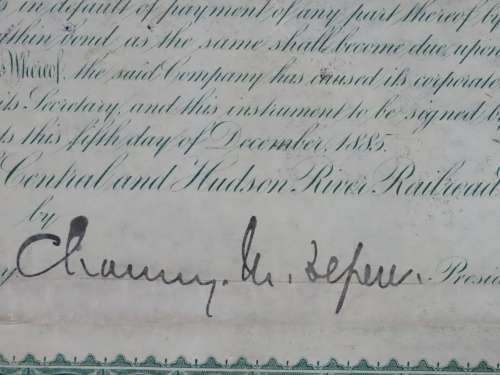 s in default of payment of any part thereof b
within bond as the same shall become due, upon
s Whereof, the said Company has caused its corporate
its Secretary, and this instrument to be signed b
ts this fifth day of December, 1885.
Central and Hudson River Railroad
by
y Chauncey. M. Depew. Presid